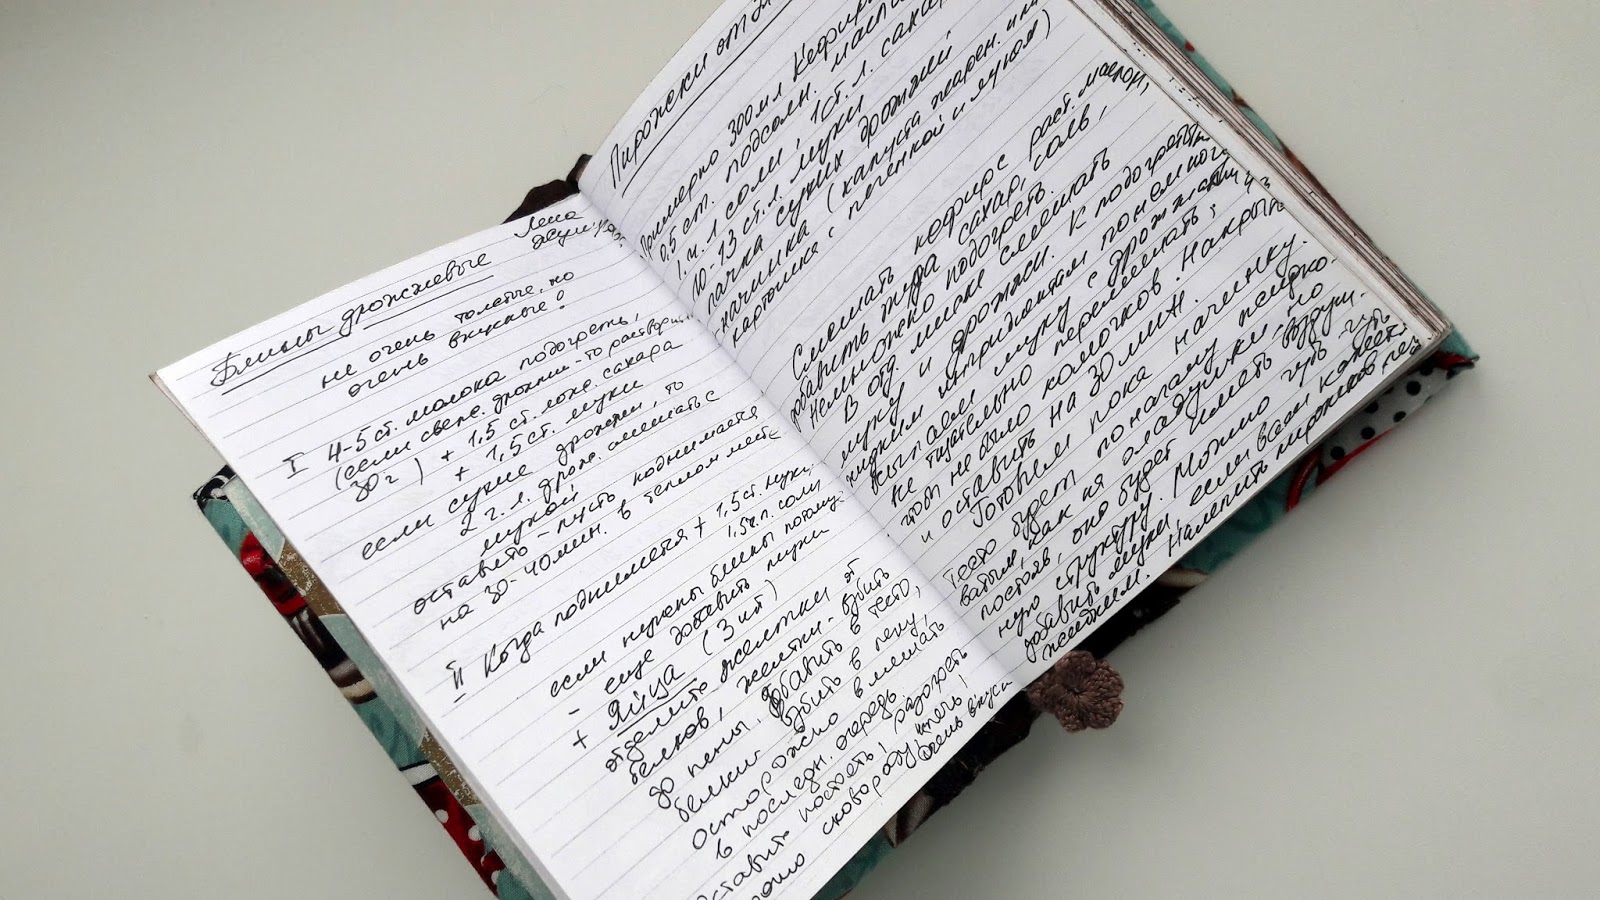 Лена
Блины дрожжевые
не очень толстые, но
очень вкусные!
I 4-5 ст. молока подогреть,
(если свеж. дрожжи - то растворить
30 г) + 1,5 ст. лож. сахара
+ 1,5 ст. муки
если сухие дрожжи, то
2 ч. л. дрож. смешать с
мукой
оставить - пусть поднимается
на 30-40 мин. в теплом месте
II Когда поднимется + 1,5 ст. муки,
1,5 ч.л. соли
если нужны блины потолще
- еще добавить муки
+ Яйца (3 шт)
отделите желтки от
белков, желтки - взбить
до пены, добавить в тесто,
белки взбить в пену,
осторожно вмешать
в последн. очередь
оставить постоять! разогреть
сковороду, и печь!
очень вкусн
Пирожки от
Примерно 300 мл Кефира
0,5 ст. подсолн. масла
1 ч. л соли, 1 ст. л. сахара
10-13 ст. л. муки
пачка сухих дрожжей
начинка (капуста жарен. или
картошка с печенкой и луком)
Смешать кефир с раст. маслом,
добавить туда сахар, соль,
Немножко подогреть.
В отд. миске смешать
муку и дрожжи. К подогретым
жидким ингридиентам понемногу
всыпаем муку с дрожжами и
все тщательно перемешать,
чтоб не было комочков. Накрыть
и оставить на 30 мин.
Готовим пока начинку.
Тесто будет поначалу жидко-
ватым, как на оладушки, но
постояв, оно будет иметь воздуш.
ную структуру. Можно чуть-чуть
добавить муки, если вам кажется
жидким. Налепить пирожков,